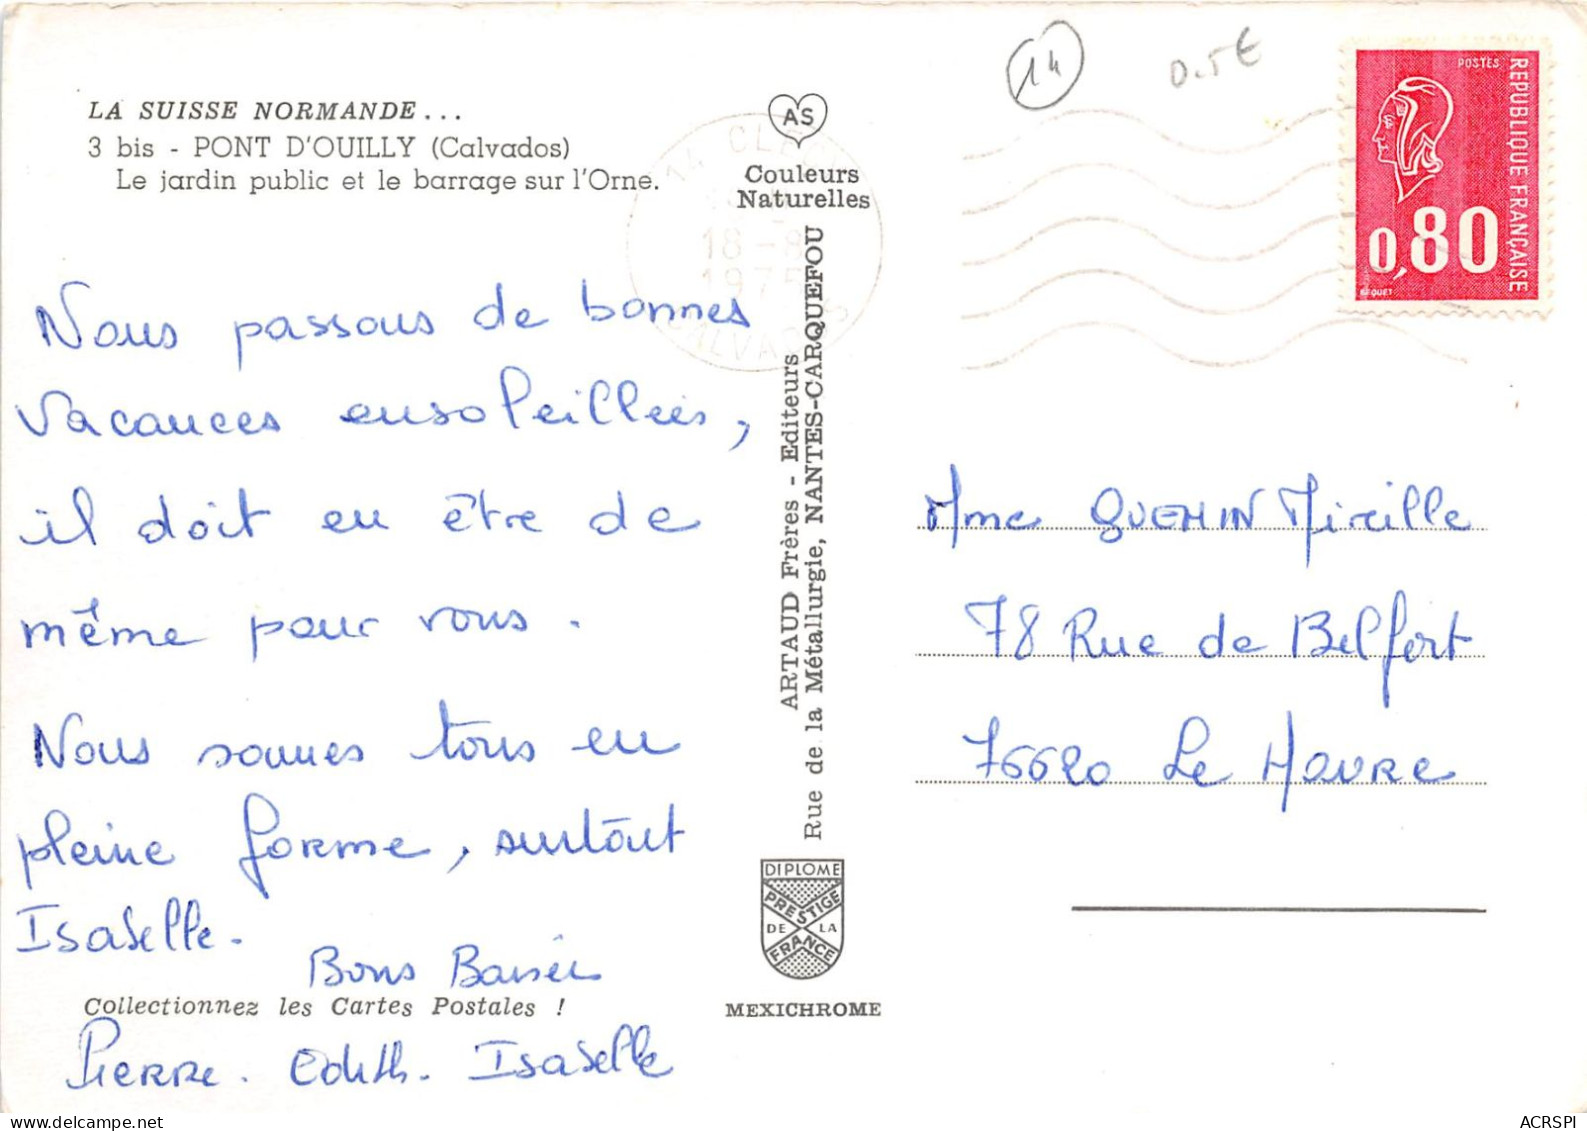 LA SUISSE NORMANDE...
3 bis - PONT D'OUILLY (Calvados)
Le jardin public et le barrage sur l'Orne.
Nous passons de bonnes
vacances ensoleillées,
il doit en être de
même pour vous.
Nous sommes tous en
pleine forme, surtout
Isabelle.
Bons Baisers
Collectionnez les Cartes Postales !
Pierre. Edith. Isabelle
AS
Couleurs
Naturelles
18 -8
1975
CALVADOS
ARTAUD Frères - Editeurs
Rue de la Métallurgie, NANTES-CARQUEFOU
DIPLOME
PRESTIGE
DE LA
FRANCE
MEXICHROME
14
0.5€
POSTES
REPUBLIQUE FRANÇAISE
0,80
BEQUET
Mme QUEMIN Mireille
78 Rue de Belfort
76620 Le HAVRE
ACRSPI